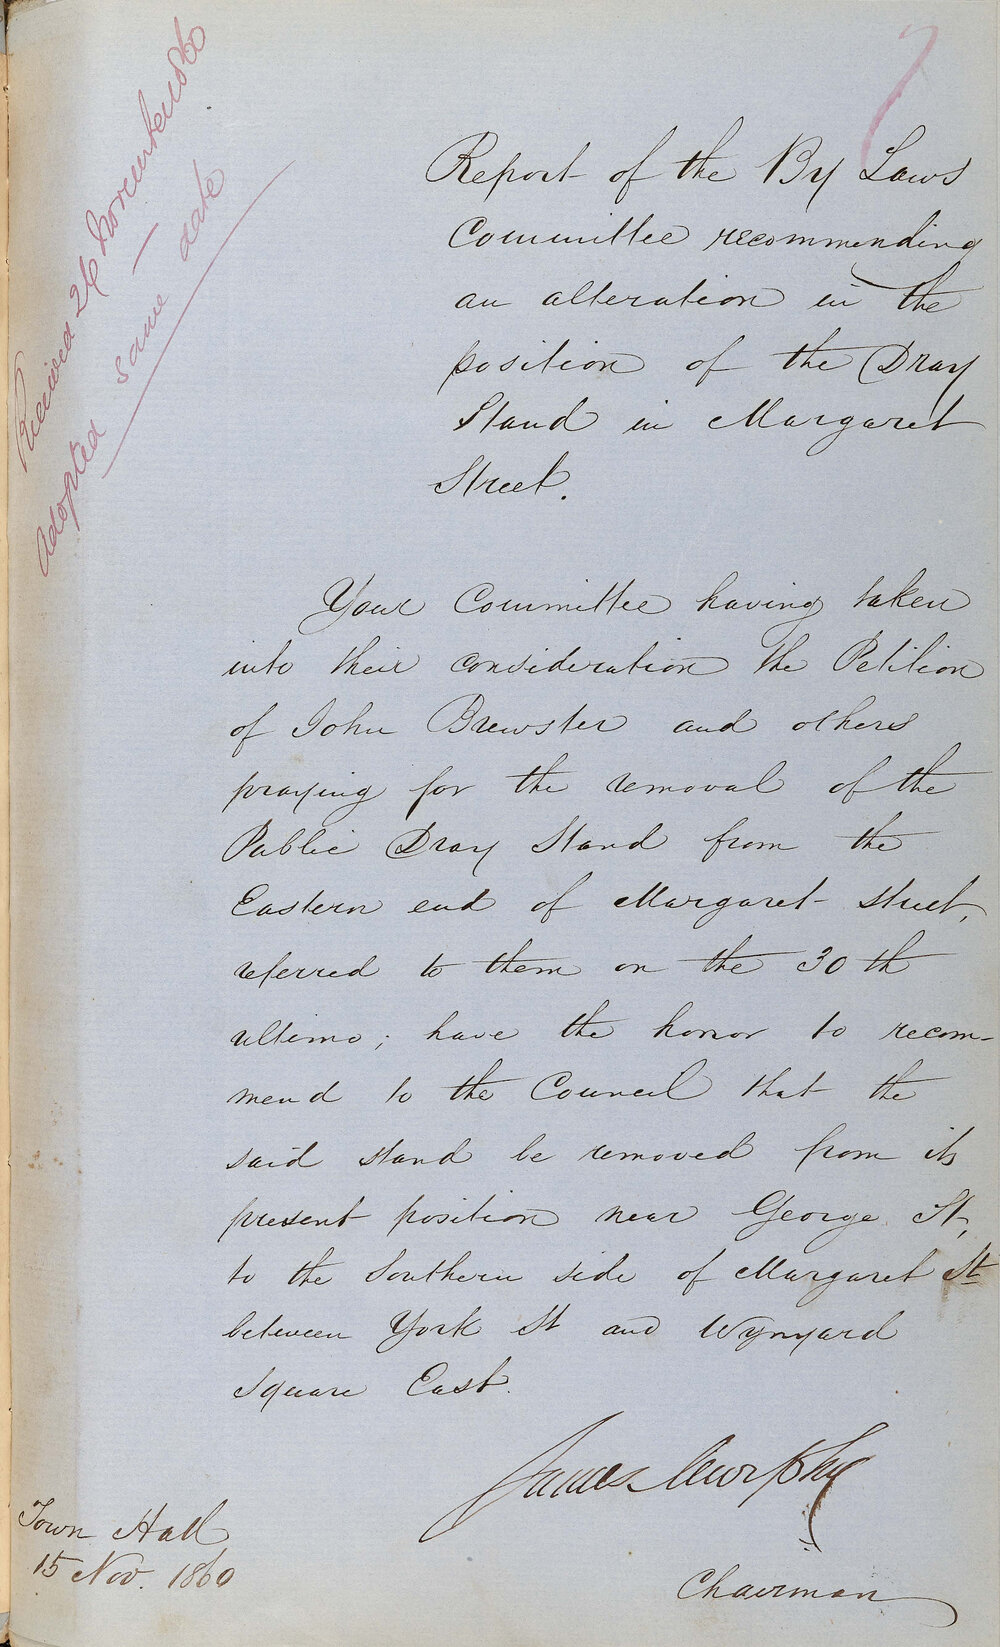 Received 26 November 1860
adopted same date
7
Report of the By Laws
Committee recommending
an alteration in the
position of the Dray
Stand in Margaret
Street.
Your Committee having taken
into their consideration the Petition
of John Brewster and others
praying for the removal of the
Public Dray Stand from the
Eastern end of Margaret Street,
referred to them on the 30th
ultimo; have the honor to recom-
mend to the Council that the
said stand be removed from its
present position near George St,
to the Southern side of Margaret St
between York St and Wynyard
Square East.
James Murphy
Chairman
Town Hall
15 Nov. 1860